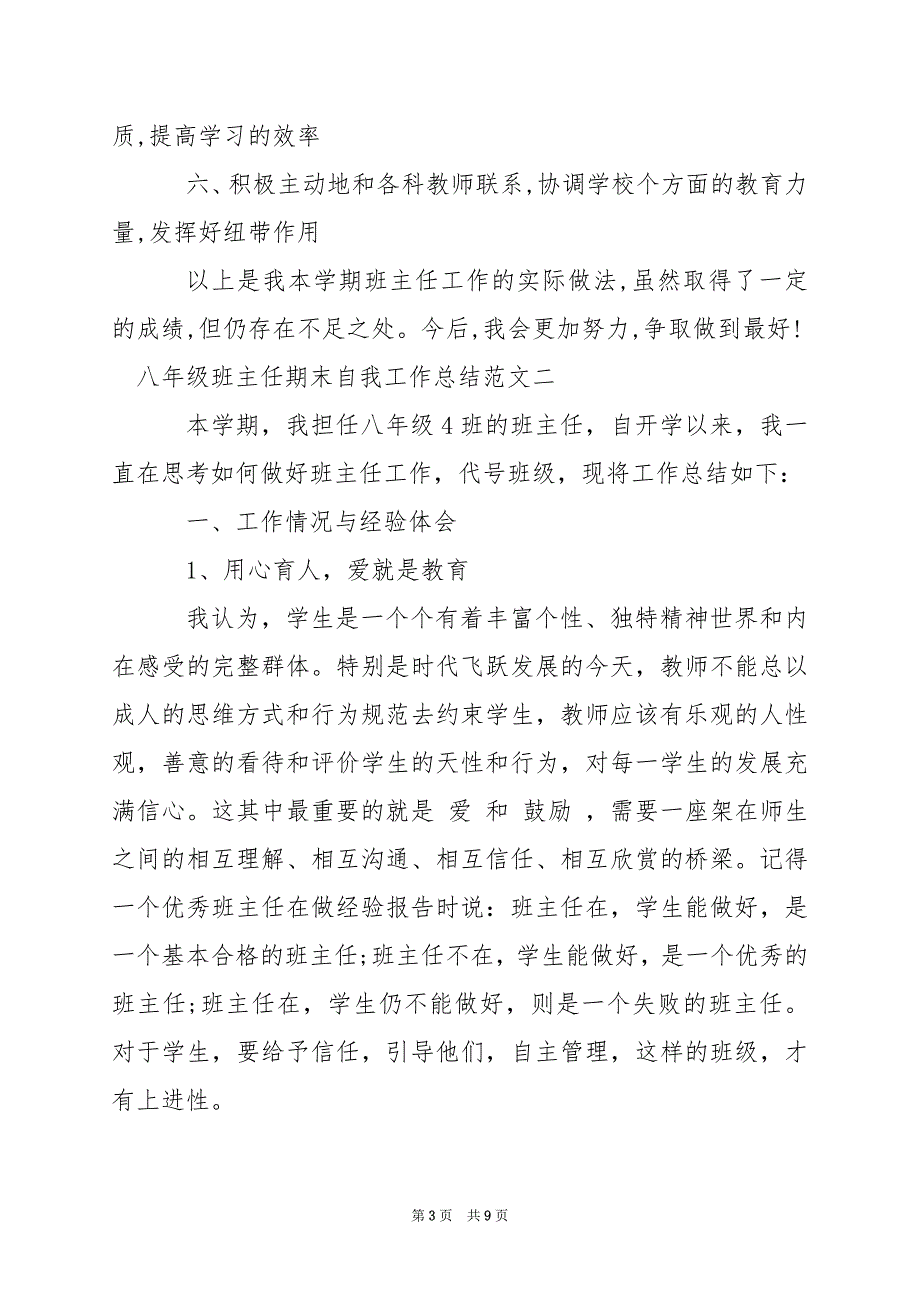 质,提高学习的效率
六、积极主动地和各科教师联系,协调学校个方面的教育力
量,发挥好纽带作用
以上是我本学期班主任工作的实际做法,虽然取得了一定
的成绩,但仍存在不足之处。今后,我会更加努力,争取做到最好!
八年级班主任期末自我工作总结范文二
本学期，我担任八年级4班的班主任，自开学以来，我一
直在思考如何做好班主任工作，代号班级，现将工作总结如下：
一、工作情况与经验体会
1、用心育人，爱就是教育
我认为，学生是一个个有着丰富个性、独特精神世界和内
在感受的完整群体。特别是时代飞跃发展的今天，教师不能总以
成人的思维方式和行为规范去约束学生，教师应该有乐观的人性
观，善意的看待和评价学生的天性和行为，对每一学生的发展充
满信心。这其中最重要的就是 爱 和 鼓励 ，需要一座架在师生
之间的相互理解、相互沟通、相互信任、相互欣赏的桥梁。记得
一个优秀班主任在做经验报告时说：班主任在，学生能做好，是
一个基本合格的班主任;班主任不在，学生能做好，是一个优秀的
班主任;班主任在，学生仍不能做好，则是一个失败的班主任。
对于学生，要给予信任，引导他们，自主管理，这样的班级，才
有上进性。
第 3 页 共 9 页